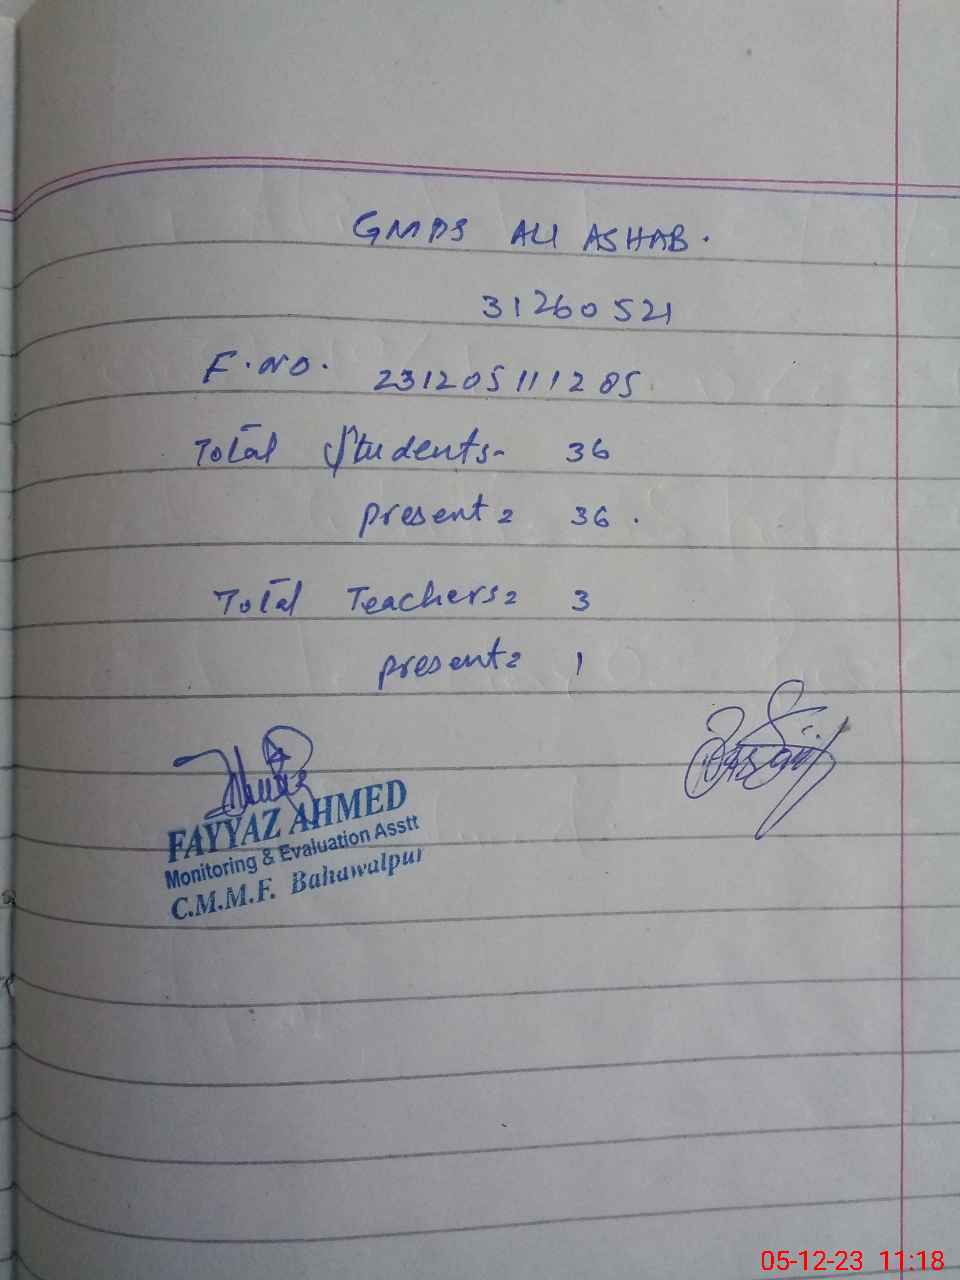 GMPS ALI ASHAB.
31260521
F.NO. 231205111205
Total Students- 36
present = 36.
Total Teachers = 3
present = 1
FAYYAZ AHMED
Monitoring & Evaluation Asstt
C.M.M.F. Bahawalpur
05-12-23 11:18